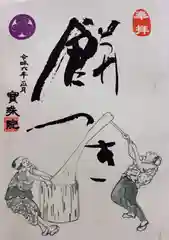 奉拝
餅つき
令和六年正月
寶珠院